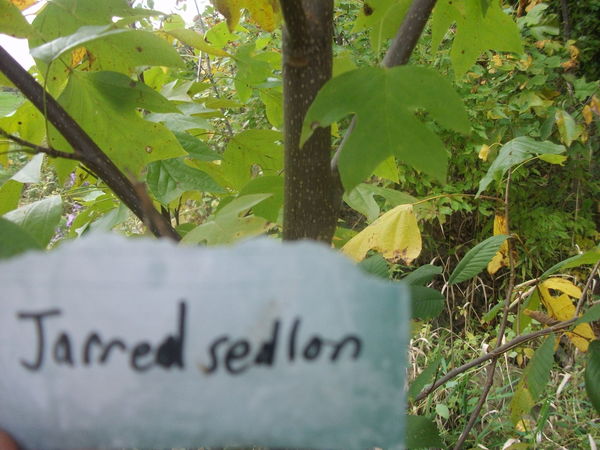 Jarred sedlon